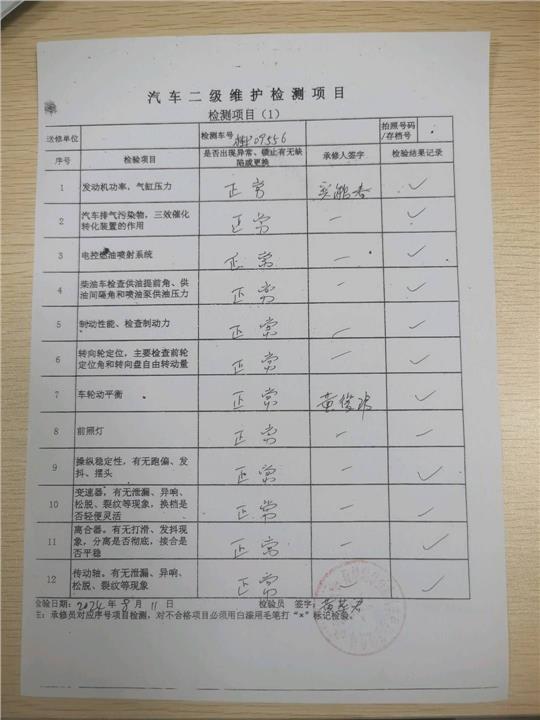 汽车二级维护检测项目
检测项目（1）
送修单位 检测车号 09556 拍照号码/存档号
序号 检验项目 是否出现异常、锁止有无缺陷或更换 承修人签字 检验结果记录
1 发动机功率，气缸压力 正常 ✓
2 汽车排气污染物，三效催化转化装置的作用 正常 — ✓
3 电控燃油喷射系统 正常 — ✓
4 柴油车检查供油提前角、供油间隔角和喷油泵供油压力 正常 — ✓
5 制动性能、检查制动力 正常 — ✓
6 转向轮定位，主要检查前轮定位角和转向盘自由转动量 正常 — ✓
7 车轮动平衡 正常 黄 ✓
8 前照灯 正常 — ✓
9 操纵稳定性，有无跑偏、发抖、摆头 正常 — ✓
10 变速器，有无泄漏、异响、松脱、裂纹等现象，换档是否轻便灵活 正常 — ✓
11 离合器。有无打滑、发抖现象，分离是否彻底，接合是否平稳 正常 — ✓
12 传动轴。有无泄漏、异响、松脱、裂纹等现象 正常 — ✓
检验日期：2024年8月11日 检验员 签字：黄
注：承修员对应序号项目检测，对不合格项目必须用白漆用毛笔打“*”标记检验。